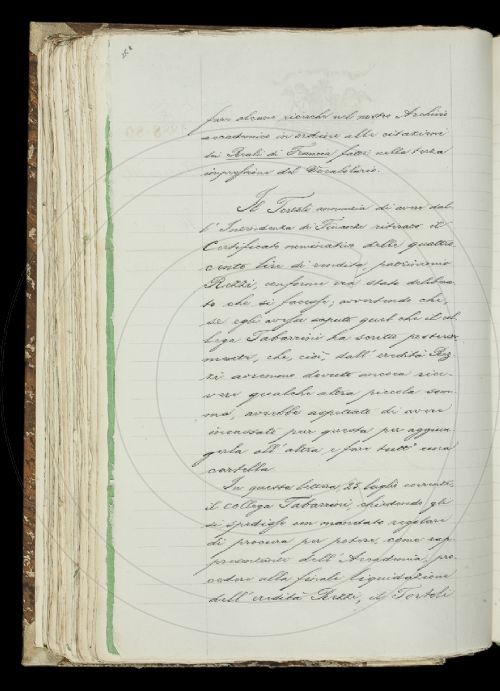 fare alcune ricerche nel nostro Archivio
accademico in ordine alle citazioni
dei Reali di Francia fatte nella terza
impressione del Vocabolario.
Il Tortoli annunzia di aver dal-
l' Intendenza di Finanza ritirato il
Certificato nominativo delle quattro-
cento lire di rendita patrimonio
Rezzi, conforme era stato delibera-
to che si facesse; avvertendo che,
se egli avesse saputo quel che il col-
lega Tabarrini ha scritto posterior-
mente, che, cioè, dall' eredità Rez-
zi avremmo dovuto ancora rice-
vere qualche altra piccola som-
ma, avrebbe aspettato di avere
incassato pur questa per aggiun-
gerla all' altra, e fare tutt' una
cartella.
In questa lettera, 25 luglio corrente,
il collega Tabarrini, chiedendo gli
si spedisse un mandato regolare
di procura per potere, come rap-
presentante dell' Accademia, pro-
cedere alla finale liquidazione
dell' eredità Rezzi, il Tortoli